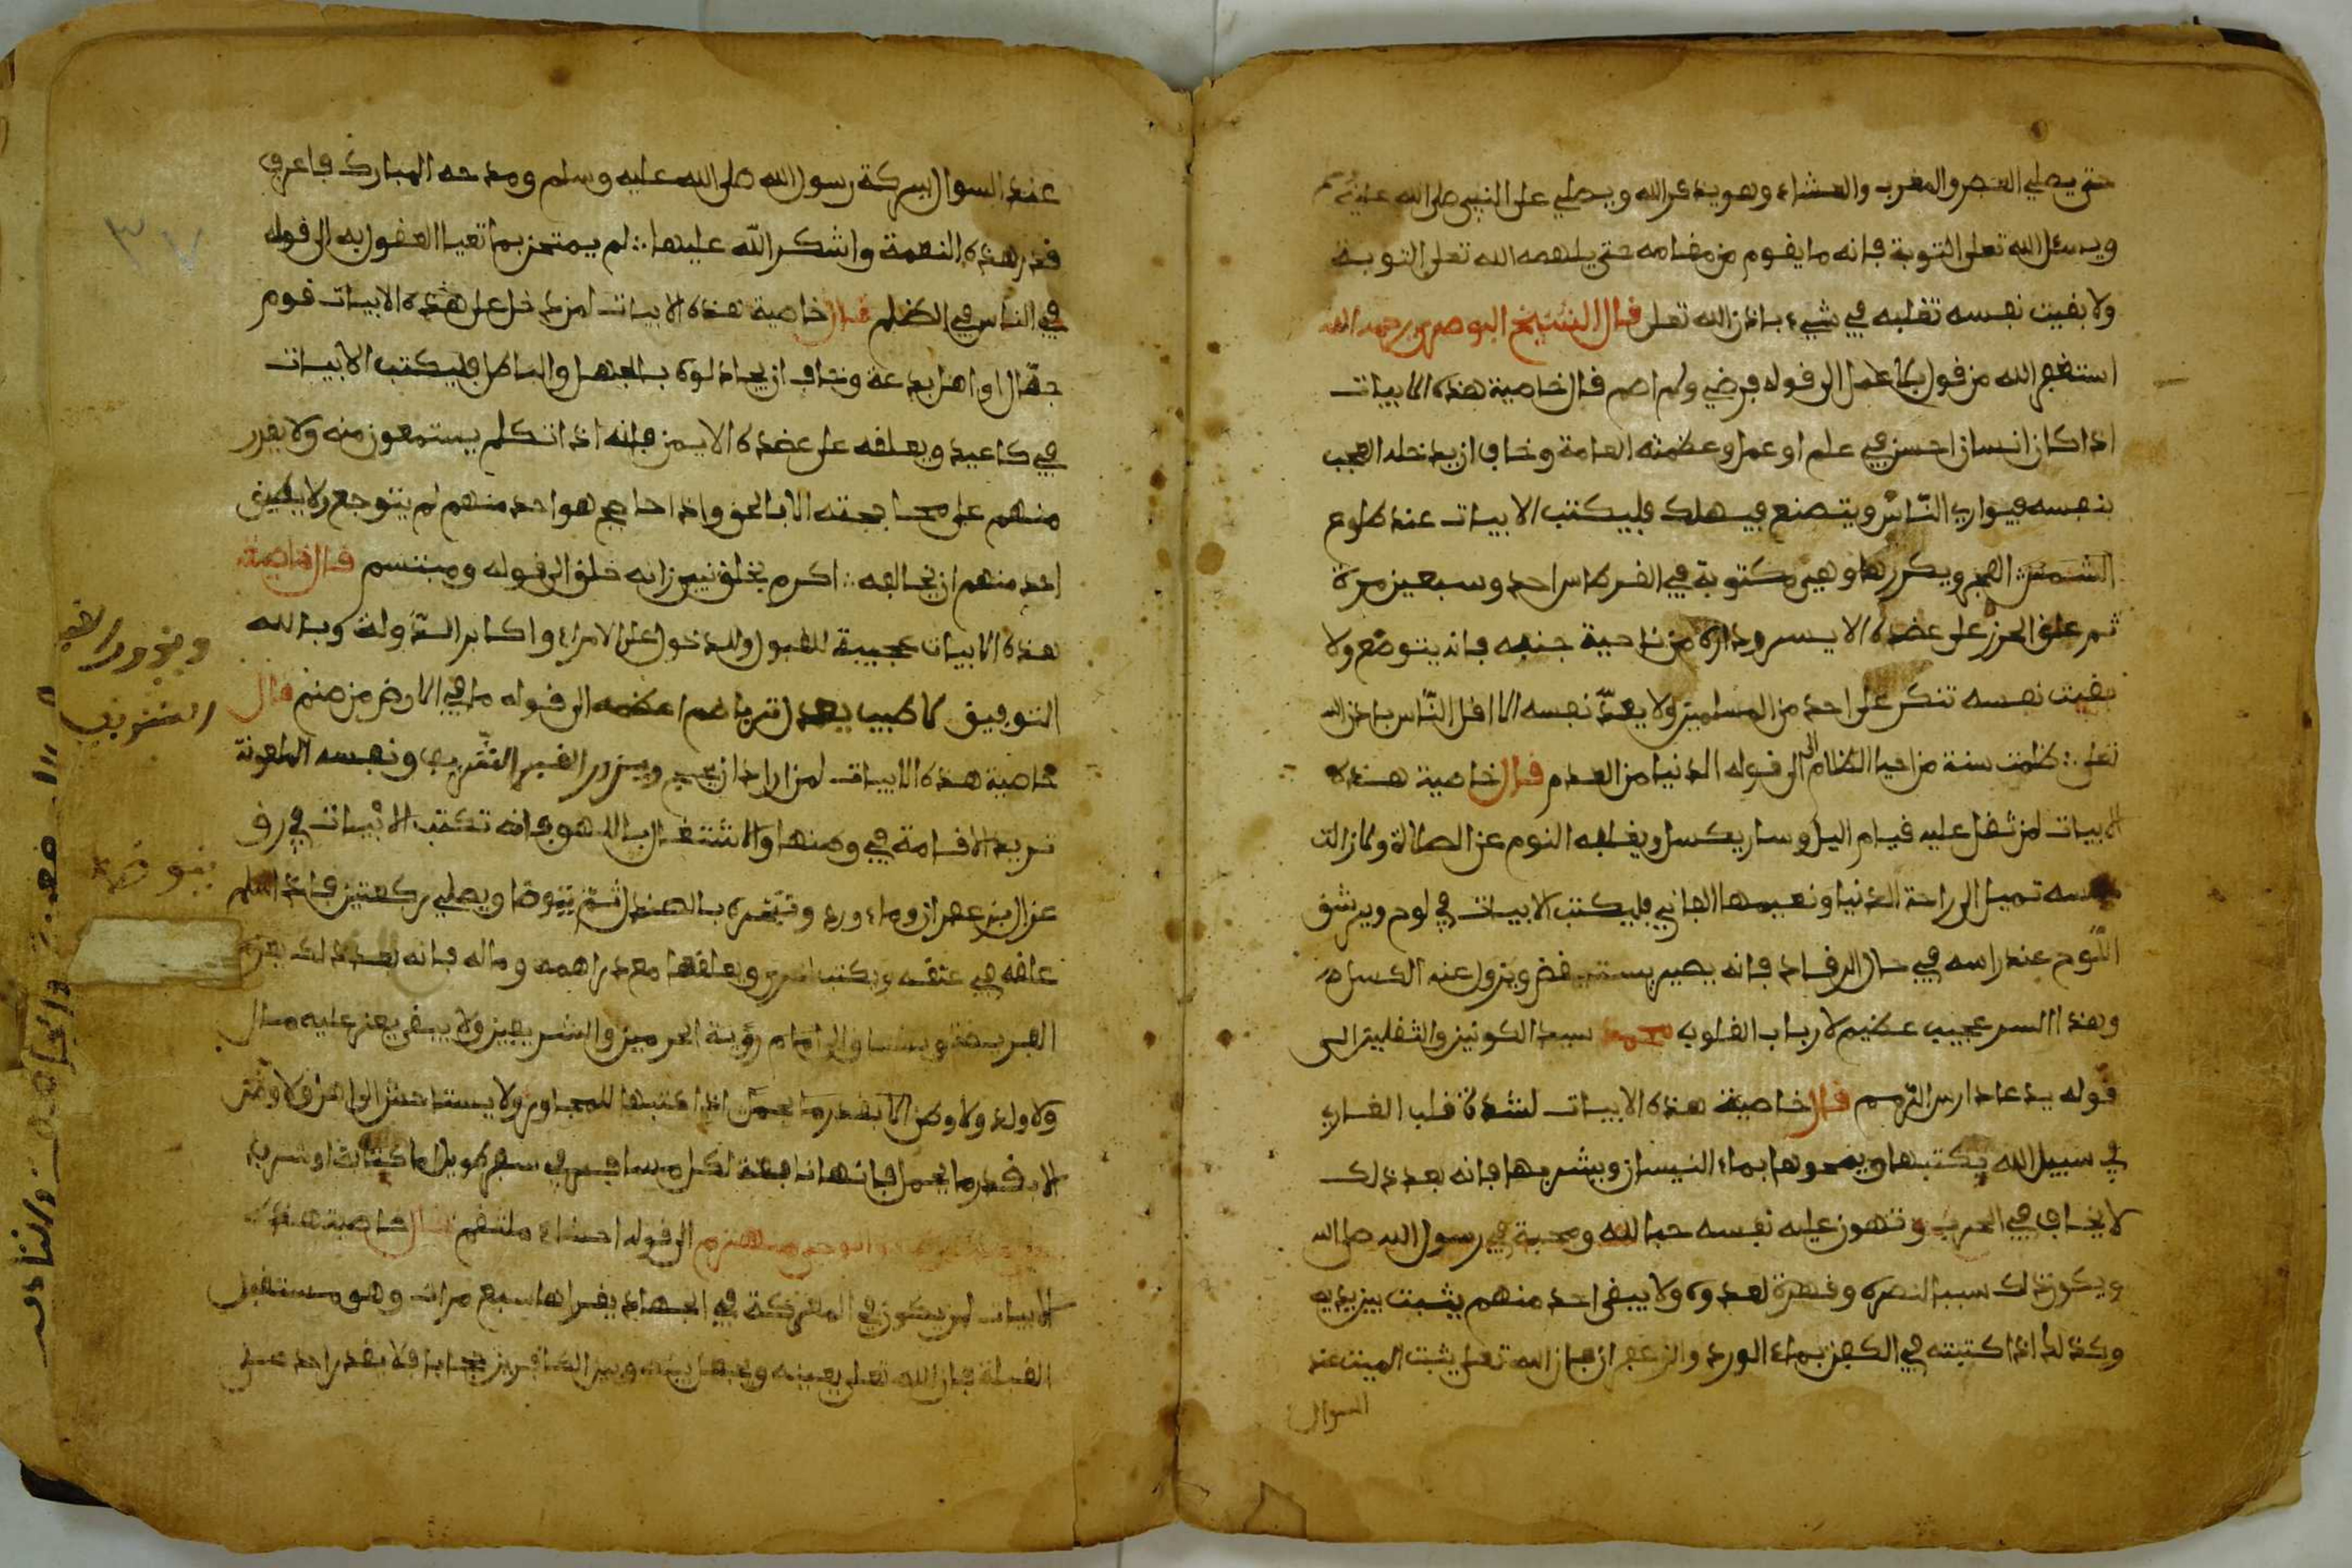 حتى يصلي العصر والمغرب والعشاء وهو يذكر الله ويصلي على النبي صلى الله عليه وسلم
ويسئل الله تعلى التوبة فإنه ما يقوم من مقامه حتى يلهمه الله تعلى التوبة
ولا بقيت نفسه تغلبه في شيء بإذن الله تعلى قال الشيخ البوصيري رحمه الله
استغفر الله من قول بلا عمل الى قوله فرضي ولم اصم قال خاصية هذه الابيات
اذا كان انسان احسن في علم او عمل وعظمته العامة وخاف ان يدخله العجب
بنفسه فيواري الناس ويتصنع فيهلك فليكتب الابيات عند طلوع
الشمس الفجر ويكررها وهي مكتوبة في القرطاس احد وسبعين مرة
ثم علق الحرز على عضده الايسر وداره من ناحية جنبه فانه يتوضع ولا
بقيت نفسه تنكر على احد من المسلمين ولا يعدّ نفسه الا اقل النّاس باذن الله
تعلى ∴ ظلمت سنة من احيا الظلام الى قوله الدنيا من العدم قال خاصية هذه
الابيات لمن ثقل عليه قيام اليل وسار يكسل ويغلبه النوم عن الصلاة ولا زالت
نفسه تميل الى راحة الدنيا ونعيمها الفاني فليكتب الابيات في لوح ويرشق
اللّوح عند راسه في حال الرقاد فانه يصير يستيقض ويزول عنه الكسل
وهذا السر عجيب عظيم لارباب القلوب محمد سيد الكونين والثقلين الى
قوله يدعا دارس الرّمم قال خاصية هذه الابيات لشدة قلب الغازي
في سبيل الله يكتبها ويمحوها بماء النيسان ويشربها فانه بعد ذلك
لا يخاف في الحرب وتهون عليه نفسه حبا لله ومحبة في رسول الله صلى الله
ويكون ذلك سببا لنصره وقهرة لعدوه ولا يبقى احد منهم يثبت بين يديه
وكذلك اذا كتبته في الكفن بماء الورد والزعفران فان الله تعلى يثبت الميت عند
السوال
عند السوال ببركة رسول الله صلى الله عليه وسلم ومدحه المبارك فاعرف
قدر هذه النعمة واشكر الله عليها ∴ لم يمتحن بما تعيا العقول به الى قوله
في الناس في الظلم قال خاصية هذه الابيات لمن دخل على هذه الابيات قوم
جهّال او اهل بدعة وخاف ان يجادلوه بالجهل والباطل فليكتب الابيات
في كاعيد ويعلقه على عضده الايمن فانه اذا تكلم يستمعون منه ولا يقدر
منهم على محاججته الا بالحق واذا حاجج هو احد منهم لم يتوجع ولا يطيق
احد منهم ان يخالفه ∴ اكرم بخلق نبي زانه خلق الى قوله ومبتسم قال خاصية
هذه الابيات عجيبة للقبول والدخول على الامراء واكابر الدّولة وبالله
التوفيق لا طيب يعدل تربا ضم اعظمه الى قوله ما في الارض من صنم قال
خاصية هذه الابيات لمن اراد ان يحج ويزور القبر الشّريف ونفسه الملعونة
تريد الاقامة في وطنها والاشتغال باللهو فانه تكتب الابيات في رق
غزال بزعفران وماء ورد وتبخره بالصندل ثمّ يتوضا ويصلي ركعتين فاذا سلم
علقه في عنقه ويكتب اخرى ويعلقها مع دراهمه وماله فانه بعد ذلك
الفريضة ويشتاق الى امام رؤية الحرمين والشريفين ولا يبقى يعز عليه مال
ولا ولد ولا وطن اذا كتبها للمجاور ولا يستاحش الى اهل ولا وطن
الا بقدر ما يحمل فانها نافعة لكل مسافر في سفر طويل
الى قوله احشاء ملتقم قال خاصية هذه
الابيات لمن يكون في المعركة في الجهاد يقراها سبع مرات وهو مستقبل
القبلة فان الله تعلى يعينه ويجعل بينه وبين الكافرين حجابا فلا يقدر احد على
ويزور القبر
الشريف
يتوضا
٣٧